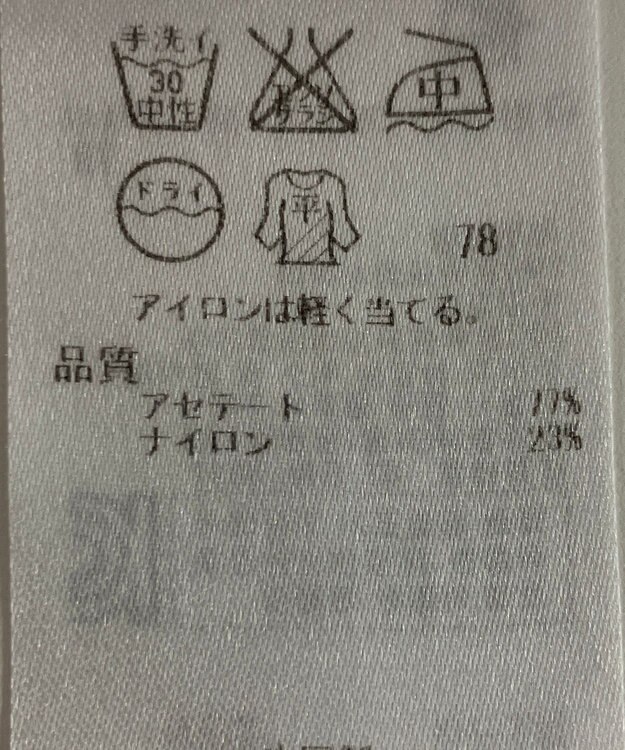 手洗イ
30
中性
エンソ
サラシ
中
ドライ
平
78
アイロンは軽く当てる。
品質
アセテート 77%
ナイロン 23%